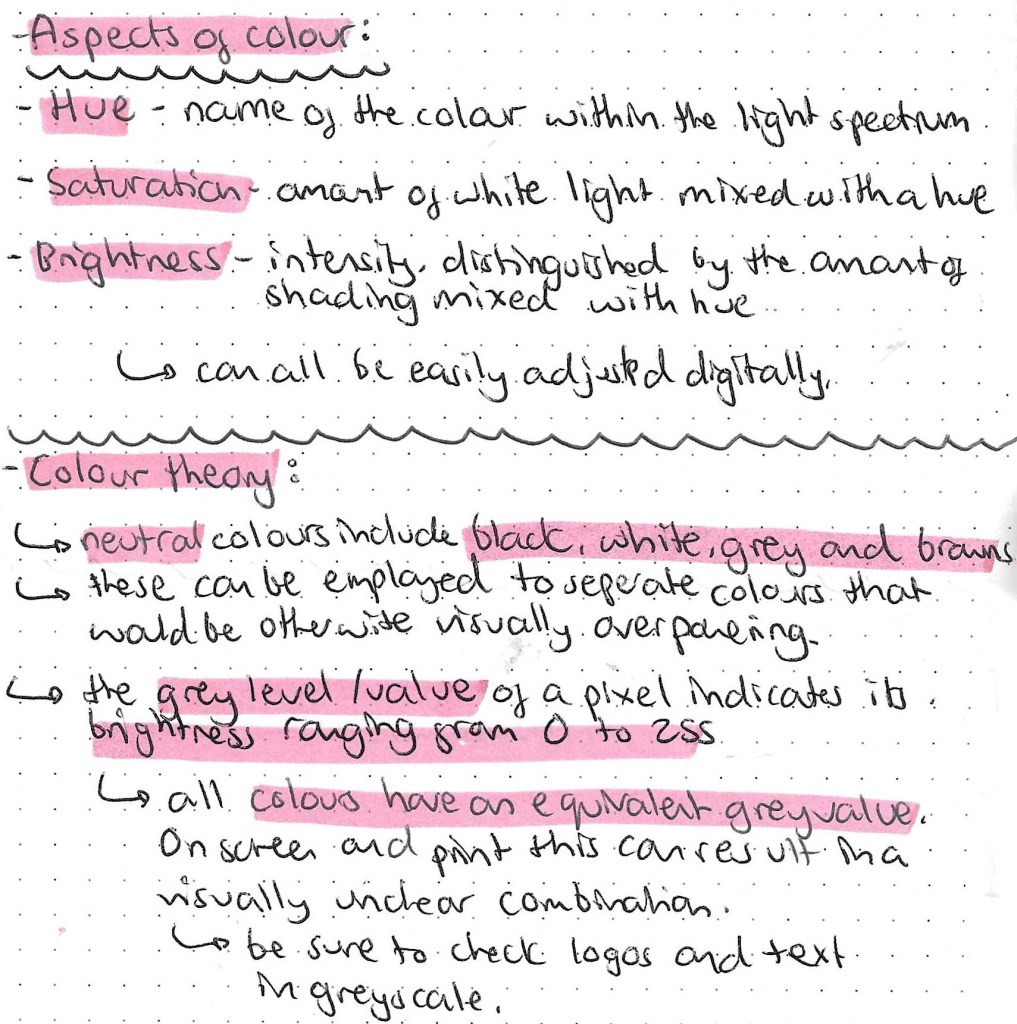 - Aspects of colour:
- Hue - name of the colour within the light spectrum
- Saturation - amount of white light mixed with a hue
- Brightness - intensity, distinguished by the amount of
shading mixed with hue
↳ can all be easily adjusted digitally.
- Colour theory:
↳ neutral colours include black, white, grey and browns
↳ these can be employed to seperate colours that
would be otherwise visually overpowering.
↳ the grey level/value of a pixel indicates its
brightness ranging from 0 to 255
↳ all colours have an equivalent grey value.
On screen and print this can result in a
visually unclear combination.
↳ be sure to check logos and text
in greyscale.